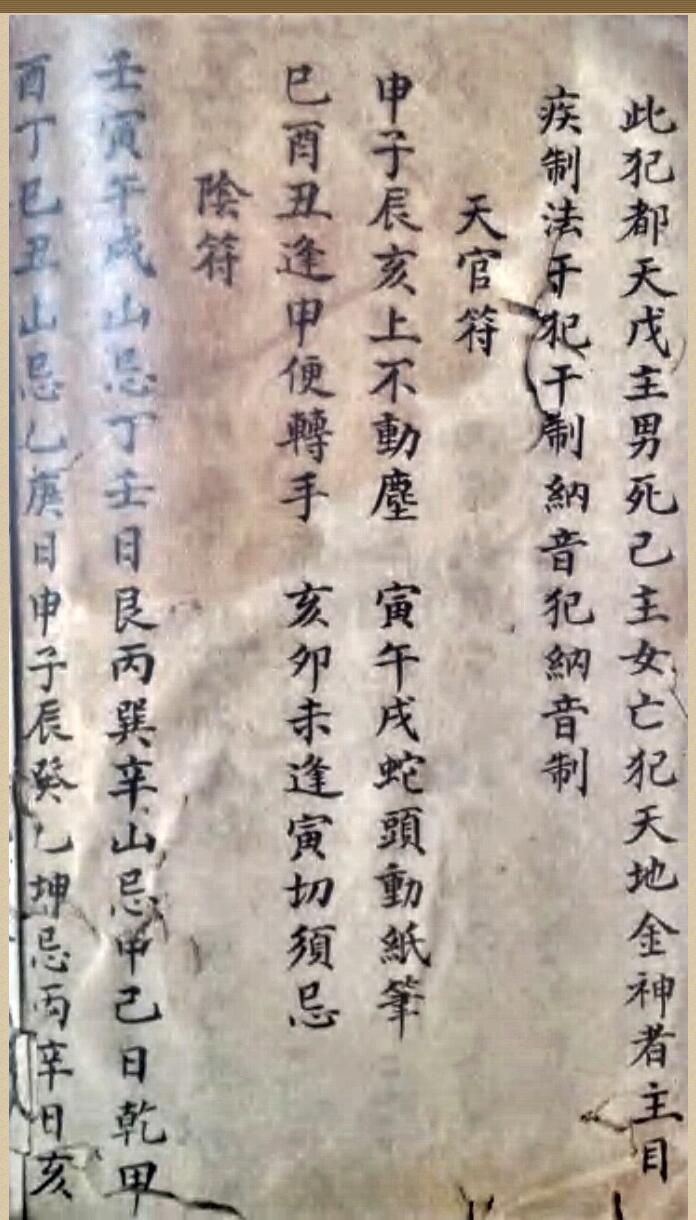 此犯都天戊主男死己主女亡犯天地金神者主目
疾制法干犯干制納音犯納音制
天官符
申子辰亥上不動塵　寅午戌蛇頭動紙筆
巳酉丑逢申便轉手　亥卯未逢寅切須忌
陰符
壬寅午戌山忌丁壬日艮丙巽辛山忌甲己日乾甲
酉丁巳丑山忌乙庚日申子辰癸乙坤忌丙辛日亥